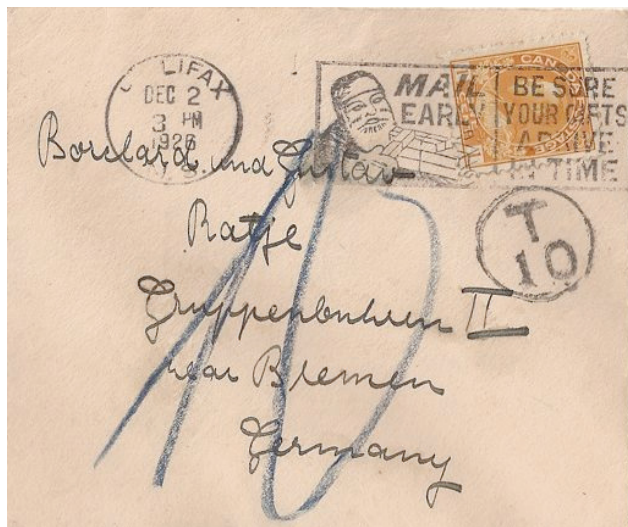 LIFAX
DEC 2
3 PM
1926
N.S.
MAIL EARLY
BE SURE
YOUR GIFTS
ARRIVE
TIME
CAN
T
10
und Gustav
Ratje
Gruppenbuhren II
near Bremen
Germany
10